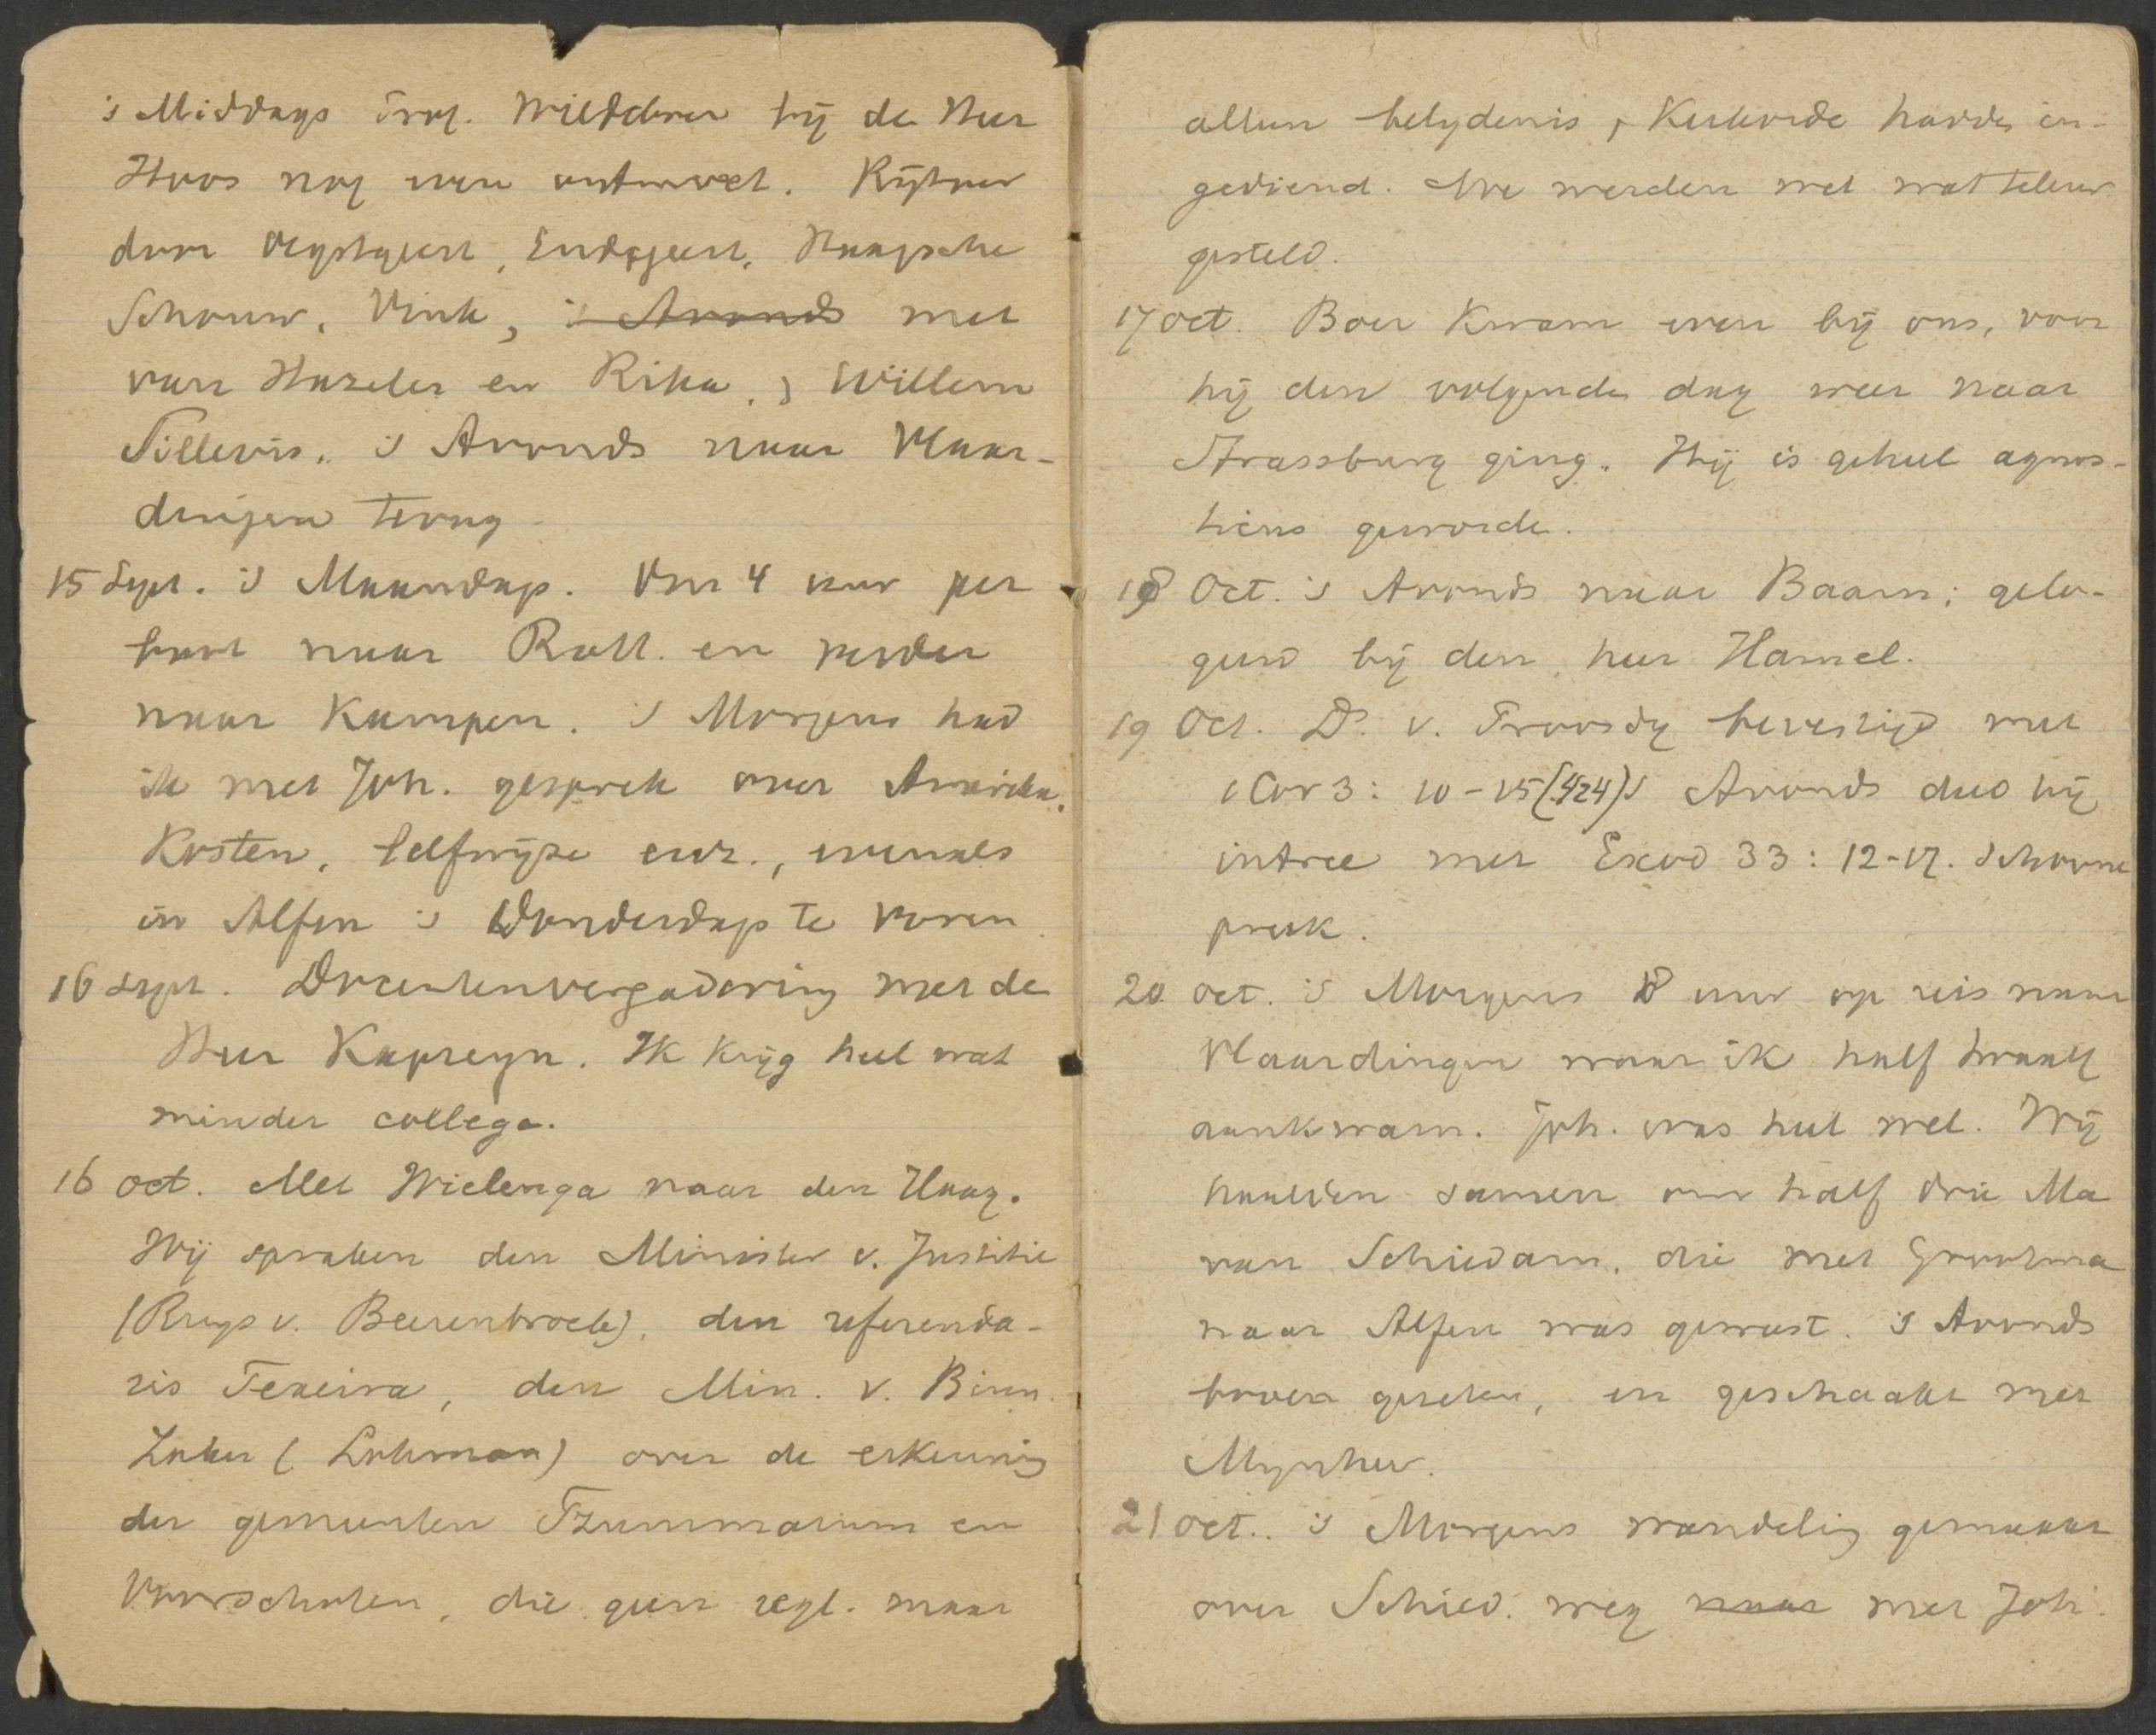 's Middags Prof. Wildeboer bij de Heer
Hoos nog even ontmoet. Rijtoer
door Oegstgeest, Endegeest, Haagsche
Schouw, Vink, 's Avonds met
van Hazelen en Rika, & Willem
Sillevis. 's Avonds naar Vlaar-
dingen terug.
15 Sept. 's Maandags. Om 4 uur per
boot naar Rott. en verder
naar Kampen. 's Morgens had
ik met Joh. gesprek over Amerika.
Kosten, leefwijze enz., evenals
in Alfen 's Donderdags te voren.
16 Sept. Docentenvergadering met de
Heer Kapteyn. Ik krijg heel wat
minder college.
16 oct. Met Wielenga naar den Haag.
Wij spraken den Minister v. Justitie
(Ruys v. Beerenbroek), den referenda-
ris Texeira, den Min. v. Binn.
Zaken (Lohman) over de erkening
der gemeenten Tzummarum en
Voorschoten, die geen regl. maar
alleen belydenis & Kerkorde hadden in-
gediend. We werden wel wat teleur
gesteld.
17 oct. Boer kwam even bij ons, voor
hij den volgenden dag weer naar
Strassburg ging. Hij is geheel agnos-
ticus geworden.
18 Oct. 's Avonds naar Baarn; gelo-
geerd bij den heer Hamel.
19 Oct. Ds. v. Proosdy bevestigd met
1 Cor 3: 10-15 (424) 's Avonds deed hij
intree met Exod 33: 12-17. Schoone
preek.
20 oct. 's Morgens 8 uur op reis naar
Vlaardingen waar ik half twaalf
aankwam. Joh. was heel wel. Wij
haalden samen om half drie Ma
van Schiedam, die met Grootma
naar Alfen was geweest. 's Avonds
boven gezeten, en geschaakt met
Mynheer.
21 oct. 's Morgens wandeling gemaakt
over Schied. weg naar met Joh.